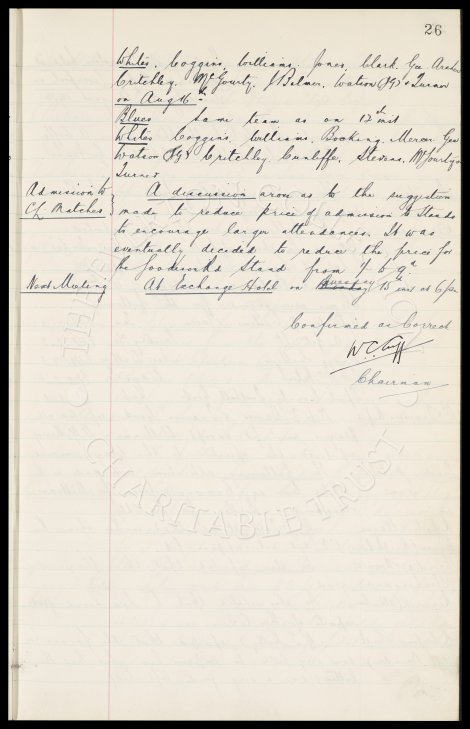 26
Whites, Coggins, Williams, Jones, Clark, Geo
Critchley, McGourty, Balmer, Watson &
on Aug 16th
Blues same team as on 12th inst
Whites Coggins, Williams, Bocking, Mercer, Geo
Watson & Critchley, Cunliffe, Stevens, McGourty
Turner
Admission to A discussion arose as the suggestion
CL Matches made to reduce price of admission to Stands
to encourage larger attendances. It was
eventually decided to reduce the price for
the Goodison Rd Stand from 1/- to 9d
Next Meeting At Exchange Hotel on Tuesday 15 inst at 6 pm
Confirmed as Correct
W.C. Cuff
Chairman
CHARITABLE TRUST